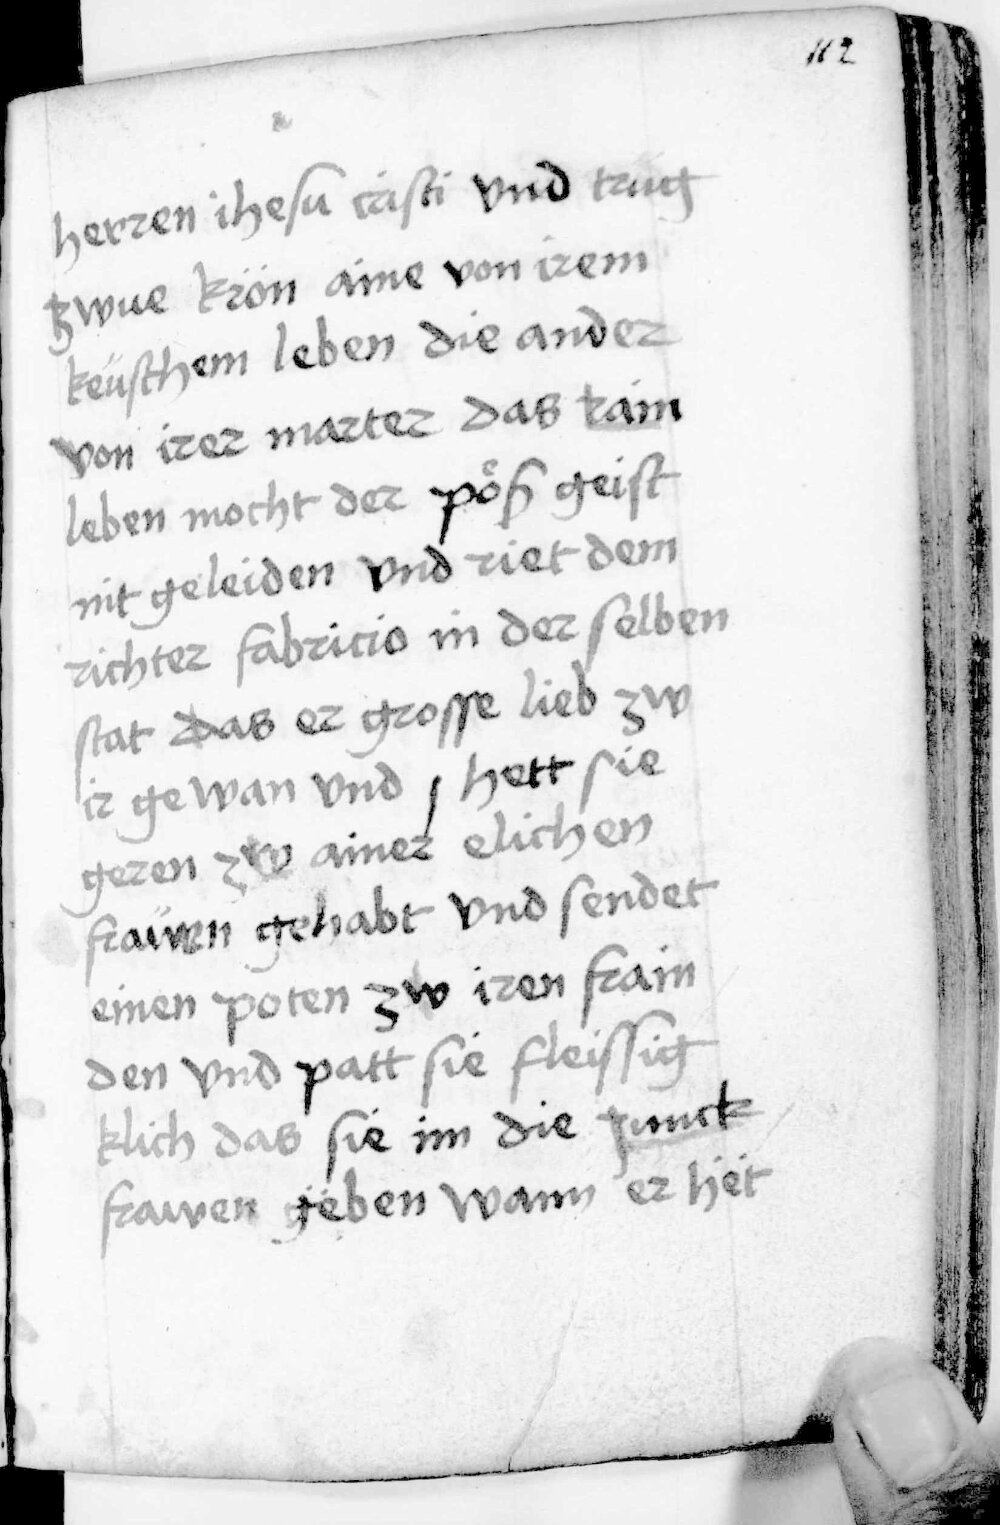 112
herren ihesu cristi vnd trug
zwue krön aine von irem
keüschem leben die ander
von irer marter das rain
leben mocht der pöß geist
nit geleiden vnd riet dem
richter fabricio in der selben
stat das er grosse lieb zw
ir gewan vnd hett sie
geren zw ainer elichen
fraẅen gehabt vnd sendet
einen poten zw iren frain
den vnd patt sie fleissig
klich das sie im die junck
frawen geben wann er het